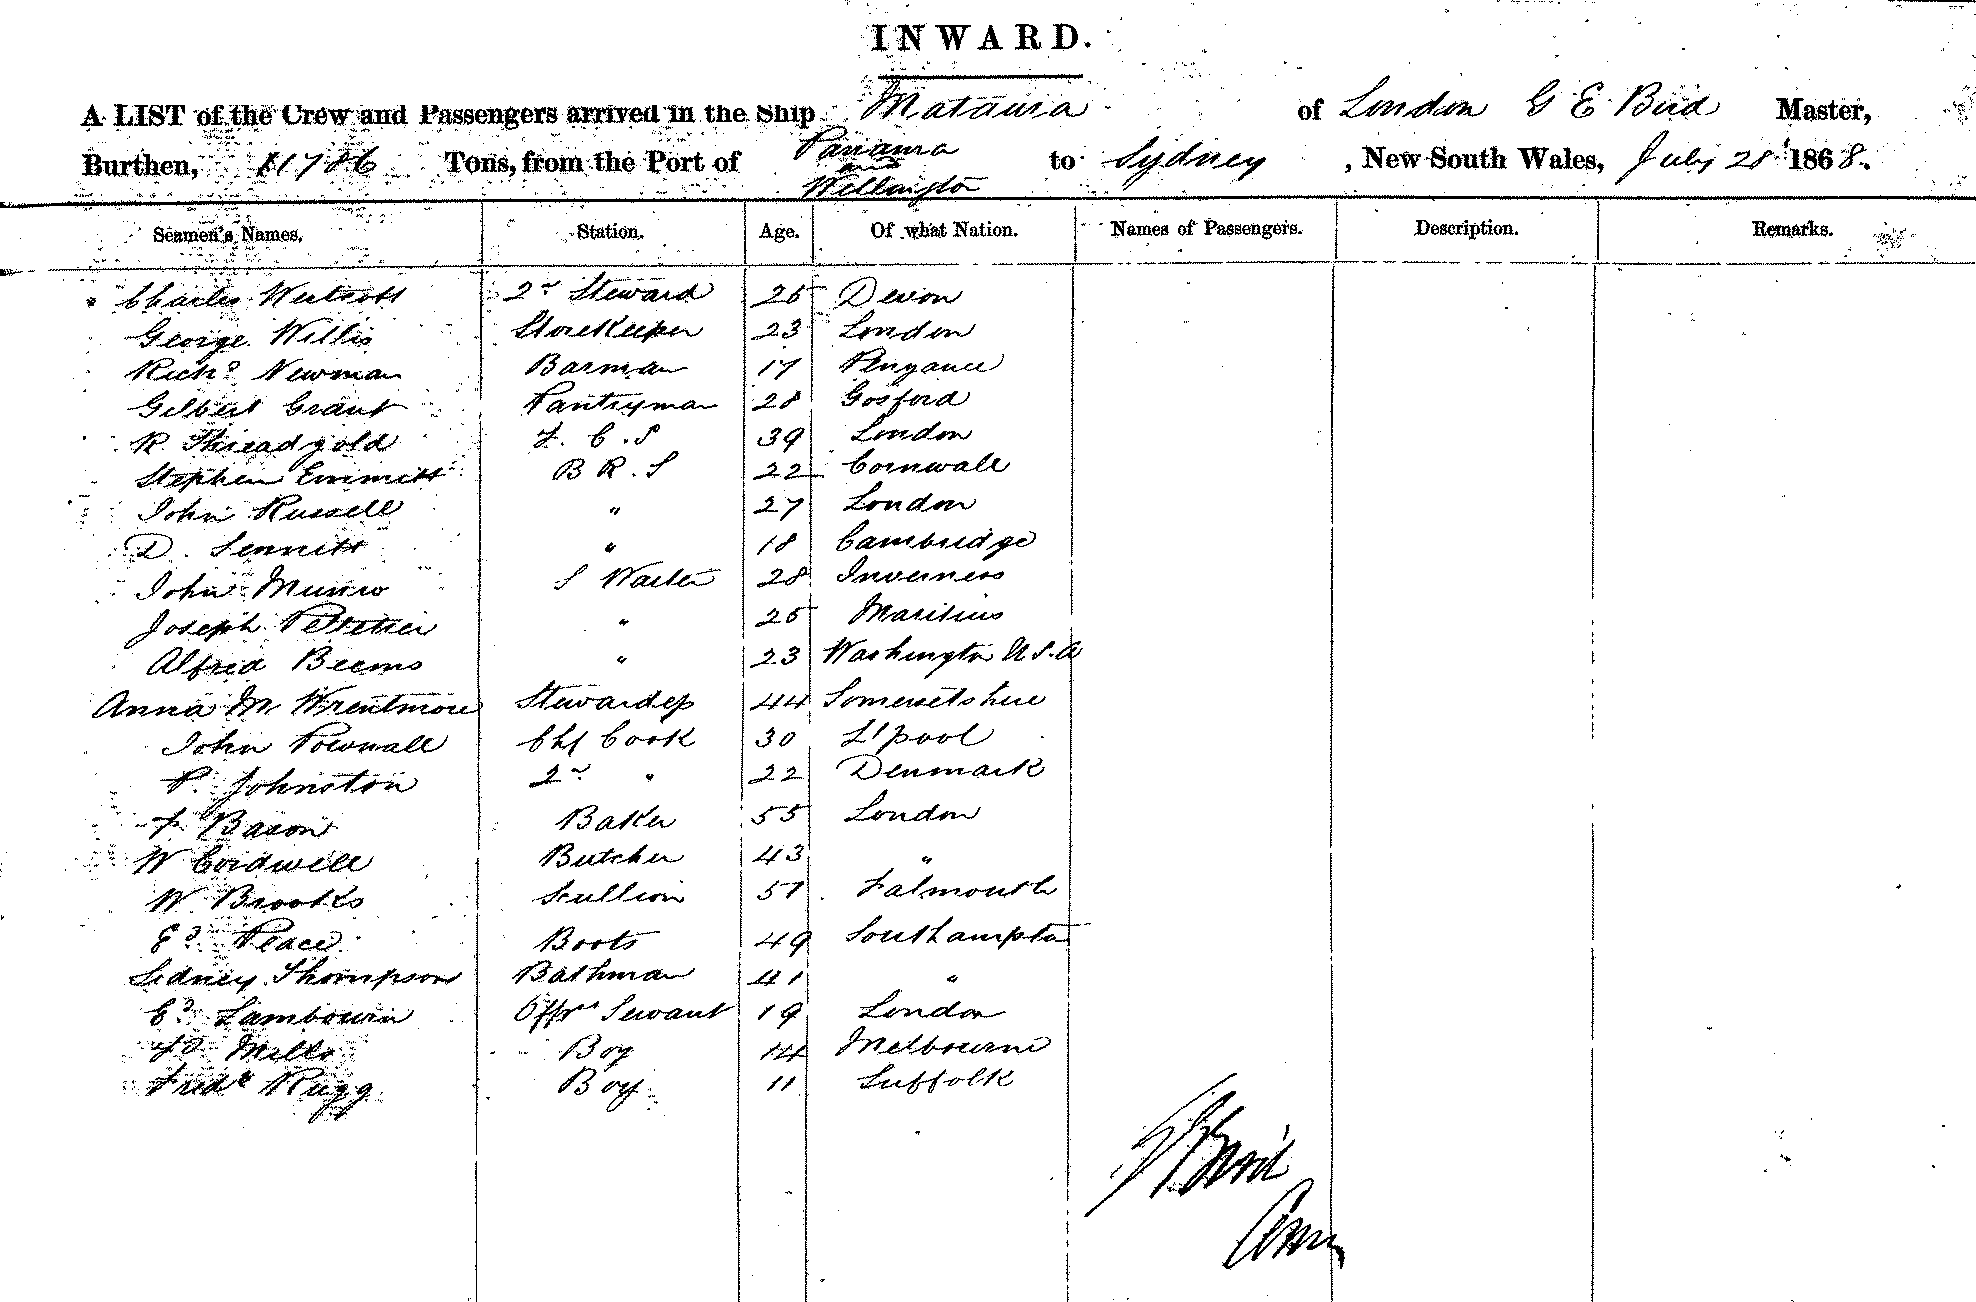 INWARD.
A LIST of the Crew and Passengers arrived in the Ship Mataura of London G E Bird Master,
Burthen, 1786 Tons, from the Port of Panama and Wellington to Sydney, New South Wales, July 28 1868.
Seamen's Names. Station. Age. Of what Nation. Names of Passengers. Description. Remarks.
Charles 2nd Steward 25 Devon
George Willis Storekeeper 23 London
Richd Newman Barman 17 Penzance
Gilbert Grant Pantryman 28 Gosford
R Threadgold F. C. S 39 London
Stephen Emmitt B R. S 22 Cornwall
John Russell " 27 London
D. Sennitt " 18 Cambridge
John Munro S Waiter 28 Inverness
Joseph Pelletier " 25 Maritius
Alfred Beems " 23 Washington U.S.A
Anna M Wrentmore Stewardess 44 Somersetshire
John Pownall Chf Cook 30 L'pool
P. Johnston 2nd " 22 Denmark
F Bacon Baker 55 London
W Cordwell Butcher 43 "
W. Brooks Scullion 51 Falmouth
Ed Peace Boots 49 Southampton
Sidney Thompson Bathman 41 "
Ed Lambourn Offrs Servant 19 London
Mills Boy 14 Melbourne
Fredk Rugg Boy 11 Suffolk
G E Bird